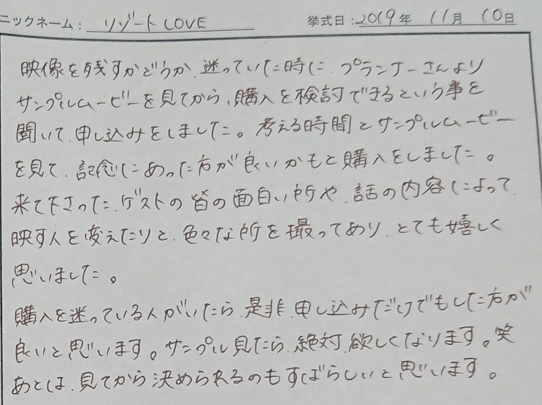 ニックネーム： リゾートLOVE 挙式日：2019年 11月 10日
映像を残すかどうか、迷っていた時に、プランナーさんより
サンプルムービーを見てから、購入を検討できるという事を
聞いて、申し込みをしました。考える時間とサンプルムービー
を見て、記念にあった方が良いかもと購入をしました。
来て下さった、ゲストの皆の面白い所や、話の内容によって
映す人を変えたりと、色々な所を撮ってあり、とても嬉しく
思いました。
購入を迷っている人がいたら、是非、申し込みだけでもした方が
良いと思います。サンプル見たら、絶対、欲しくなります。笑
あとは、見てから決められるのもすばらしいと思います。